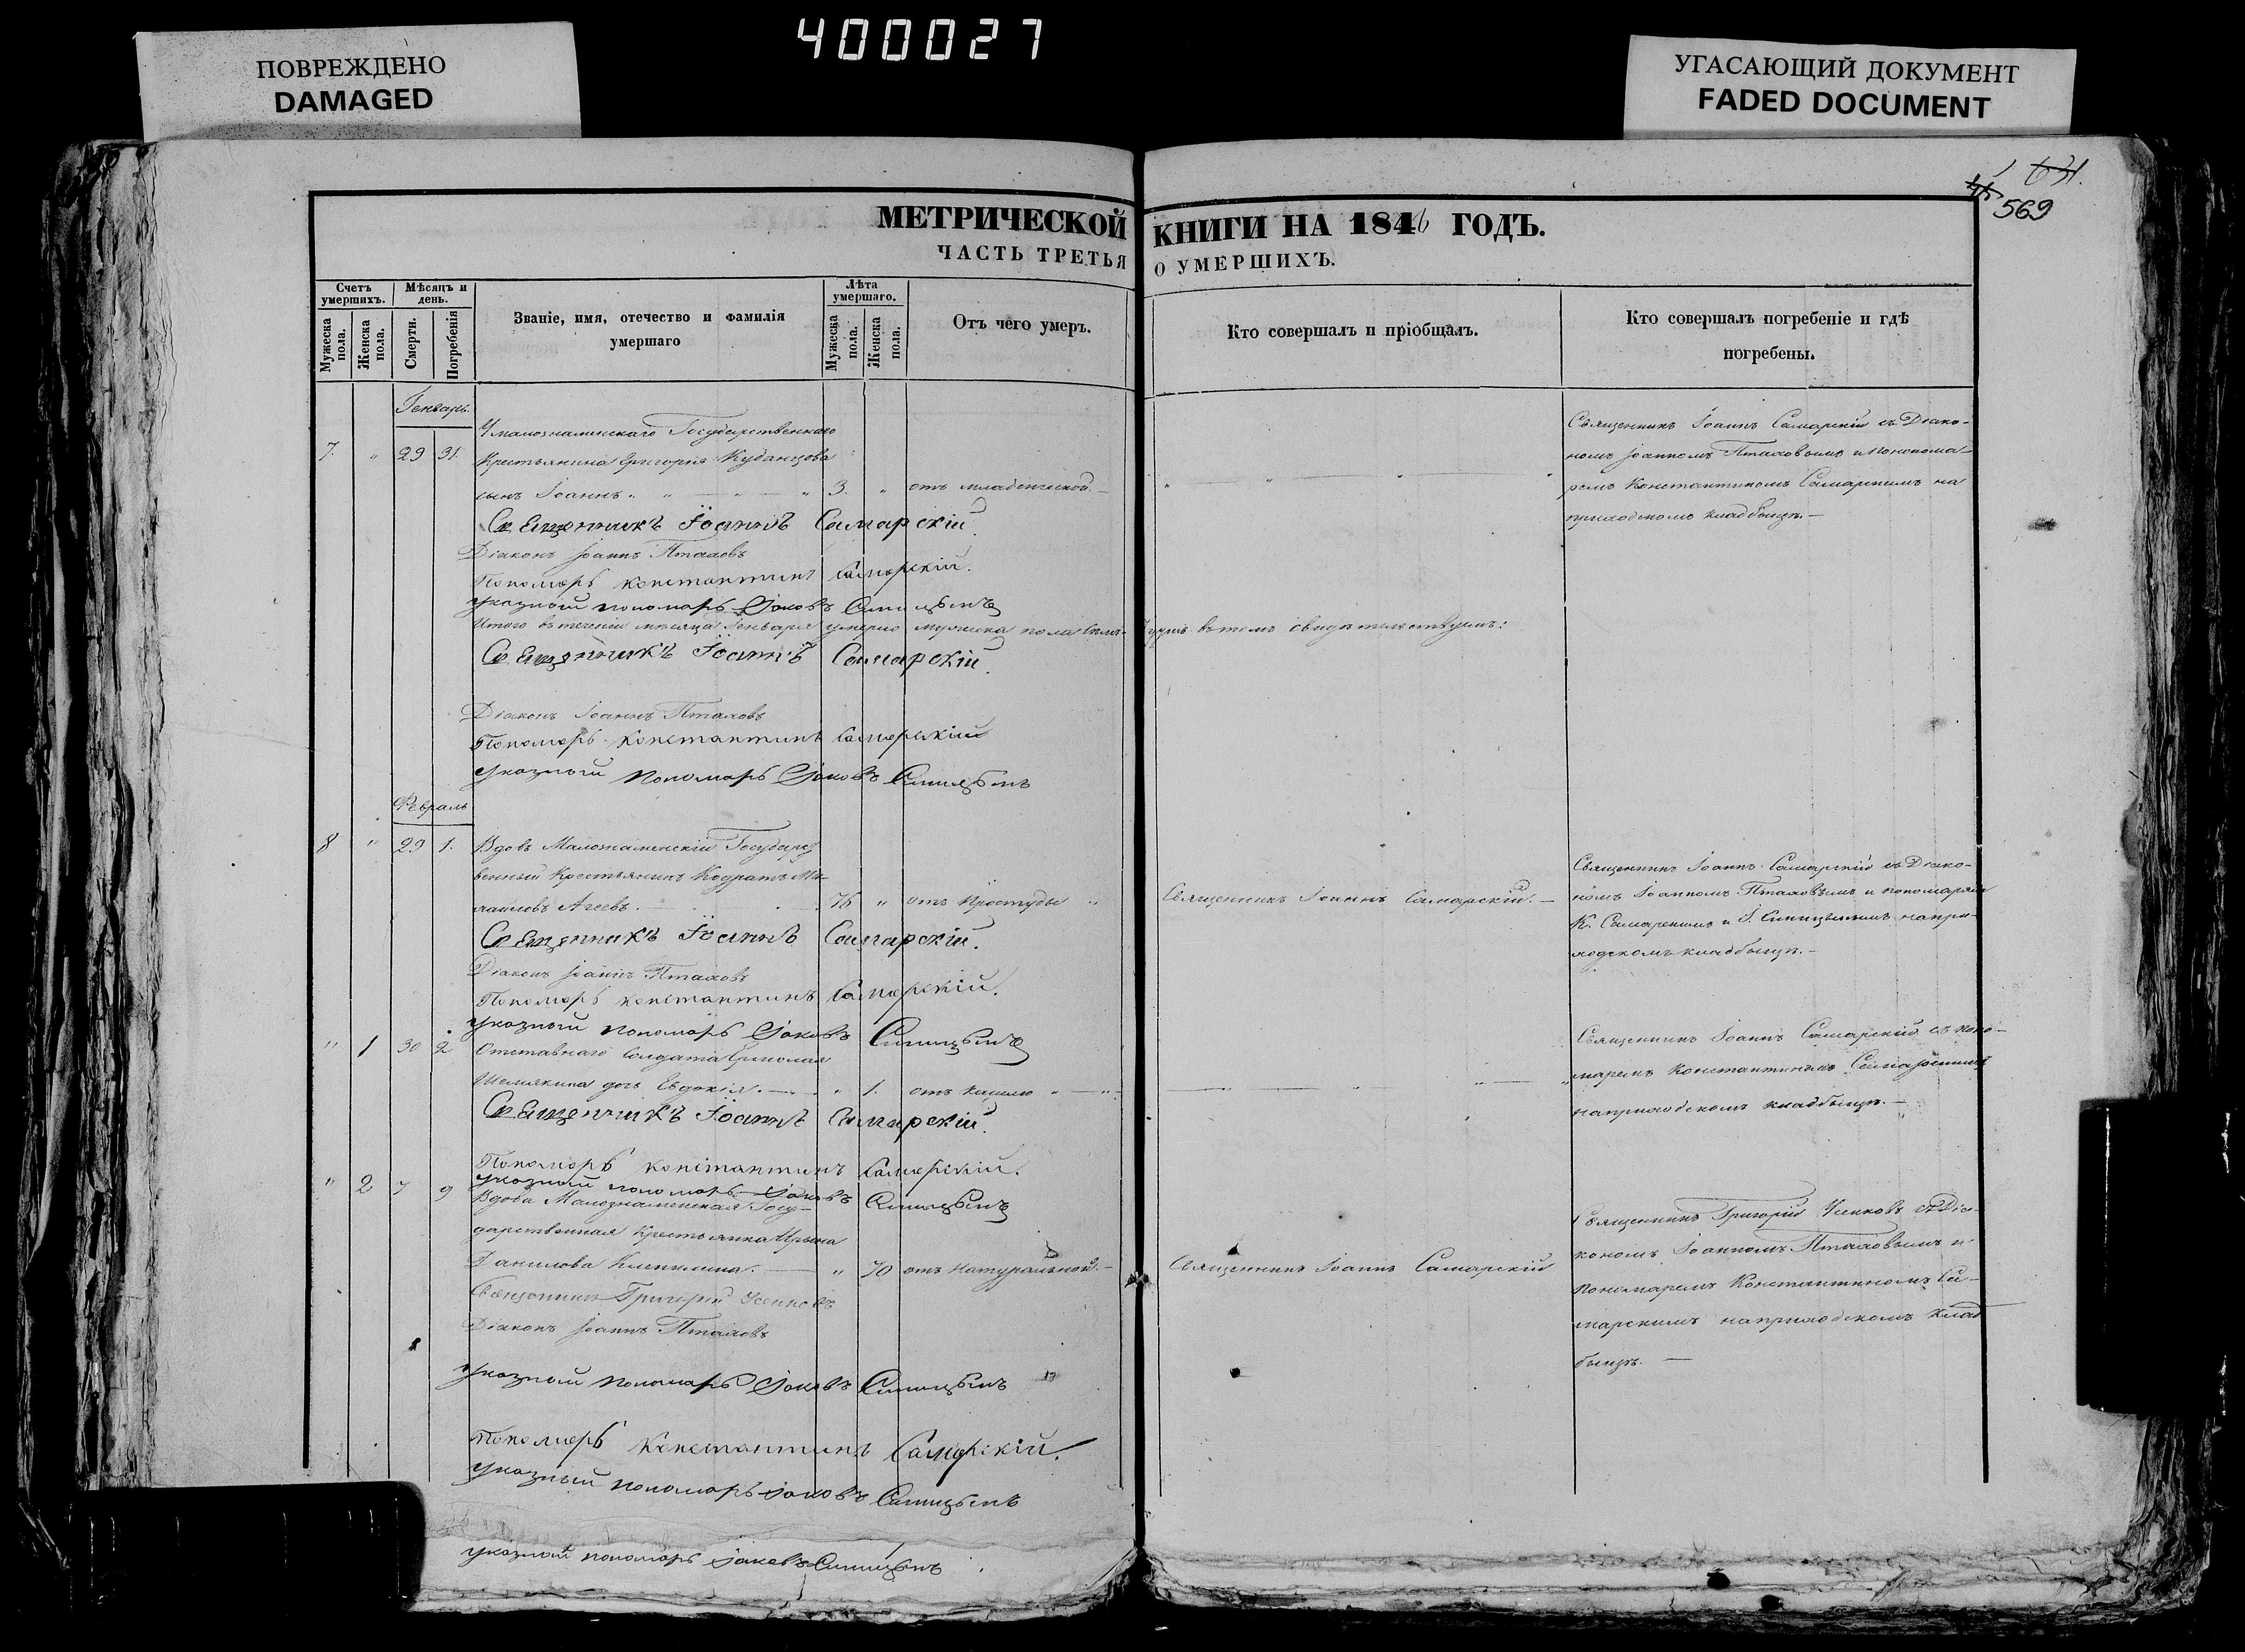 400027
ПОВРЕЖДЕНО
DAMAGED
УГАСАЮЩИЙ ДОКУМЕНТ
FADED DOCUMENT
569
МЕТРИЧЕСКОЙ КНИГИ НА 1846 ГОДЪ.
ЧАСТЬ ТРЕТЬЯ О УМЕРШИХЪ.
Счетъ умершихъ.
Мужеска пола.
Женска пола.
Мѣсяцъ и день.
Смерти.
Погребенія
Званіе, имя, отечество и фамилія
умершаго
Лѣта умершаго.
Мужеска пола.
Женска пола.
Отъ чего умеръ.
Кто совершалъ и пріобщалъ.
Кто совершалъ погребеніе и гдѣ
погребены.
Генварь.
7. " 29 31.
Государственнаго
Крестьянина Григорія Кубанцова
сынъ Іоаннъ " " " 3. " отъ младенческой
Священникъ Іоаннъ Самарскій съ Діако-
номъ Іоанномъ Птаховымъ и Понома-
ремъ Константиномъ Самарскимъ на
приходскомъ кладбищѣ.
Священникъ Іоаннъ Самарскій.
Діаконъ Іоаннъ Птаховъ
Пономарь Константинъ Самарскій.
Указной пономарь Іаковъ Синицынъ
Итого въ теченіи мѣсяца Генваря умерло мужеска пола въ томъ свидѣтельствуемъ:
Священникъ Іоаннъ Самарскій.
Діаконъ Іоаннъ Птаховъ
Пономарь Константинъ Самарскій
Указной пономарь Іаковъ Синицынъ
Февраль
8 " 29 1. Вдовъ Малознаменскій Государст
венный Крестьянинъ Кодратъ Ми-
хаиловъ Агеевъ. 76 " отъ Простуды "
Священникъ Іоаннъ Самарскій.
Священникъ Іоаннъ Самарскій съ Діако-
номъ Іоанномъ Птаховымъ и пономарями
К. Самарскимъ и І. Синицынымъ на при-
ходскомъ кладбищѣ.
Священникъ Іоаннъ Самарскій.
Діаконъ Іоаннъ Птаховъ
Пономарь Константинъ Самарскій.
Указной пономарь Іаковъ Синицынъ
" 1 30 2 Отставнаго Солдата
Шемякина дочь Евдокія. " 1. отъ кашлю "
Священникъ Іоаннъ Самарскій съ поно-
маремъ Константиномъ Самарскимъ
на приходскомъ кладбищѣ.
Священникъ Іоаннъ Самарскій.
Пономарь Константинъ Самарскій.
Указной пономарь Іаковъ Синицынъ
" 2 7 9 Вдова Малознаменская Госу-
дарственная Крестьянка Ирина
Данилова " 70 отъ Натуральной.
Священникъ Іоаннъ Самарскій
Священникъ Григорій Усенковъ съ Діа-
кономъ Іоанномъ Птаховымъ и
пономаремъ Константиномъ Са-
марскимъ на приходскомъ клад
бищѣ.
Священникъ Григорій Усенковъ
Діаконъ Іоаннъ Птаховъ
Указной пономарь Іаковъ Синицынъ
Пономарь Константинъ Самарскій.
Указный пономарь Іаковъ Синицынъ
Указной пономарь Іаковъ Синицынъ